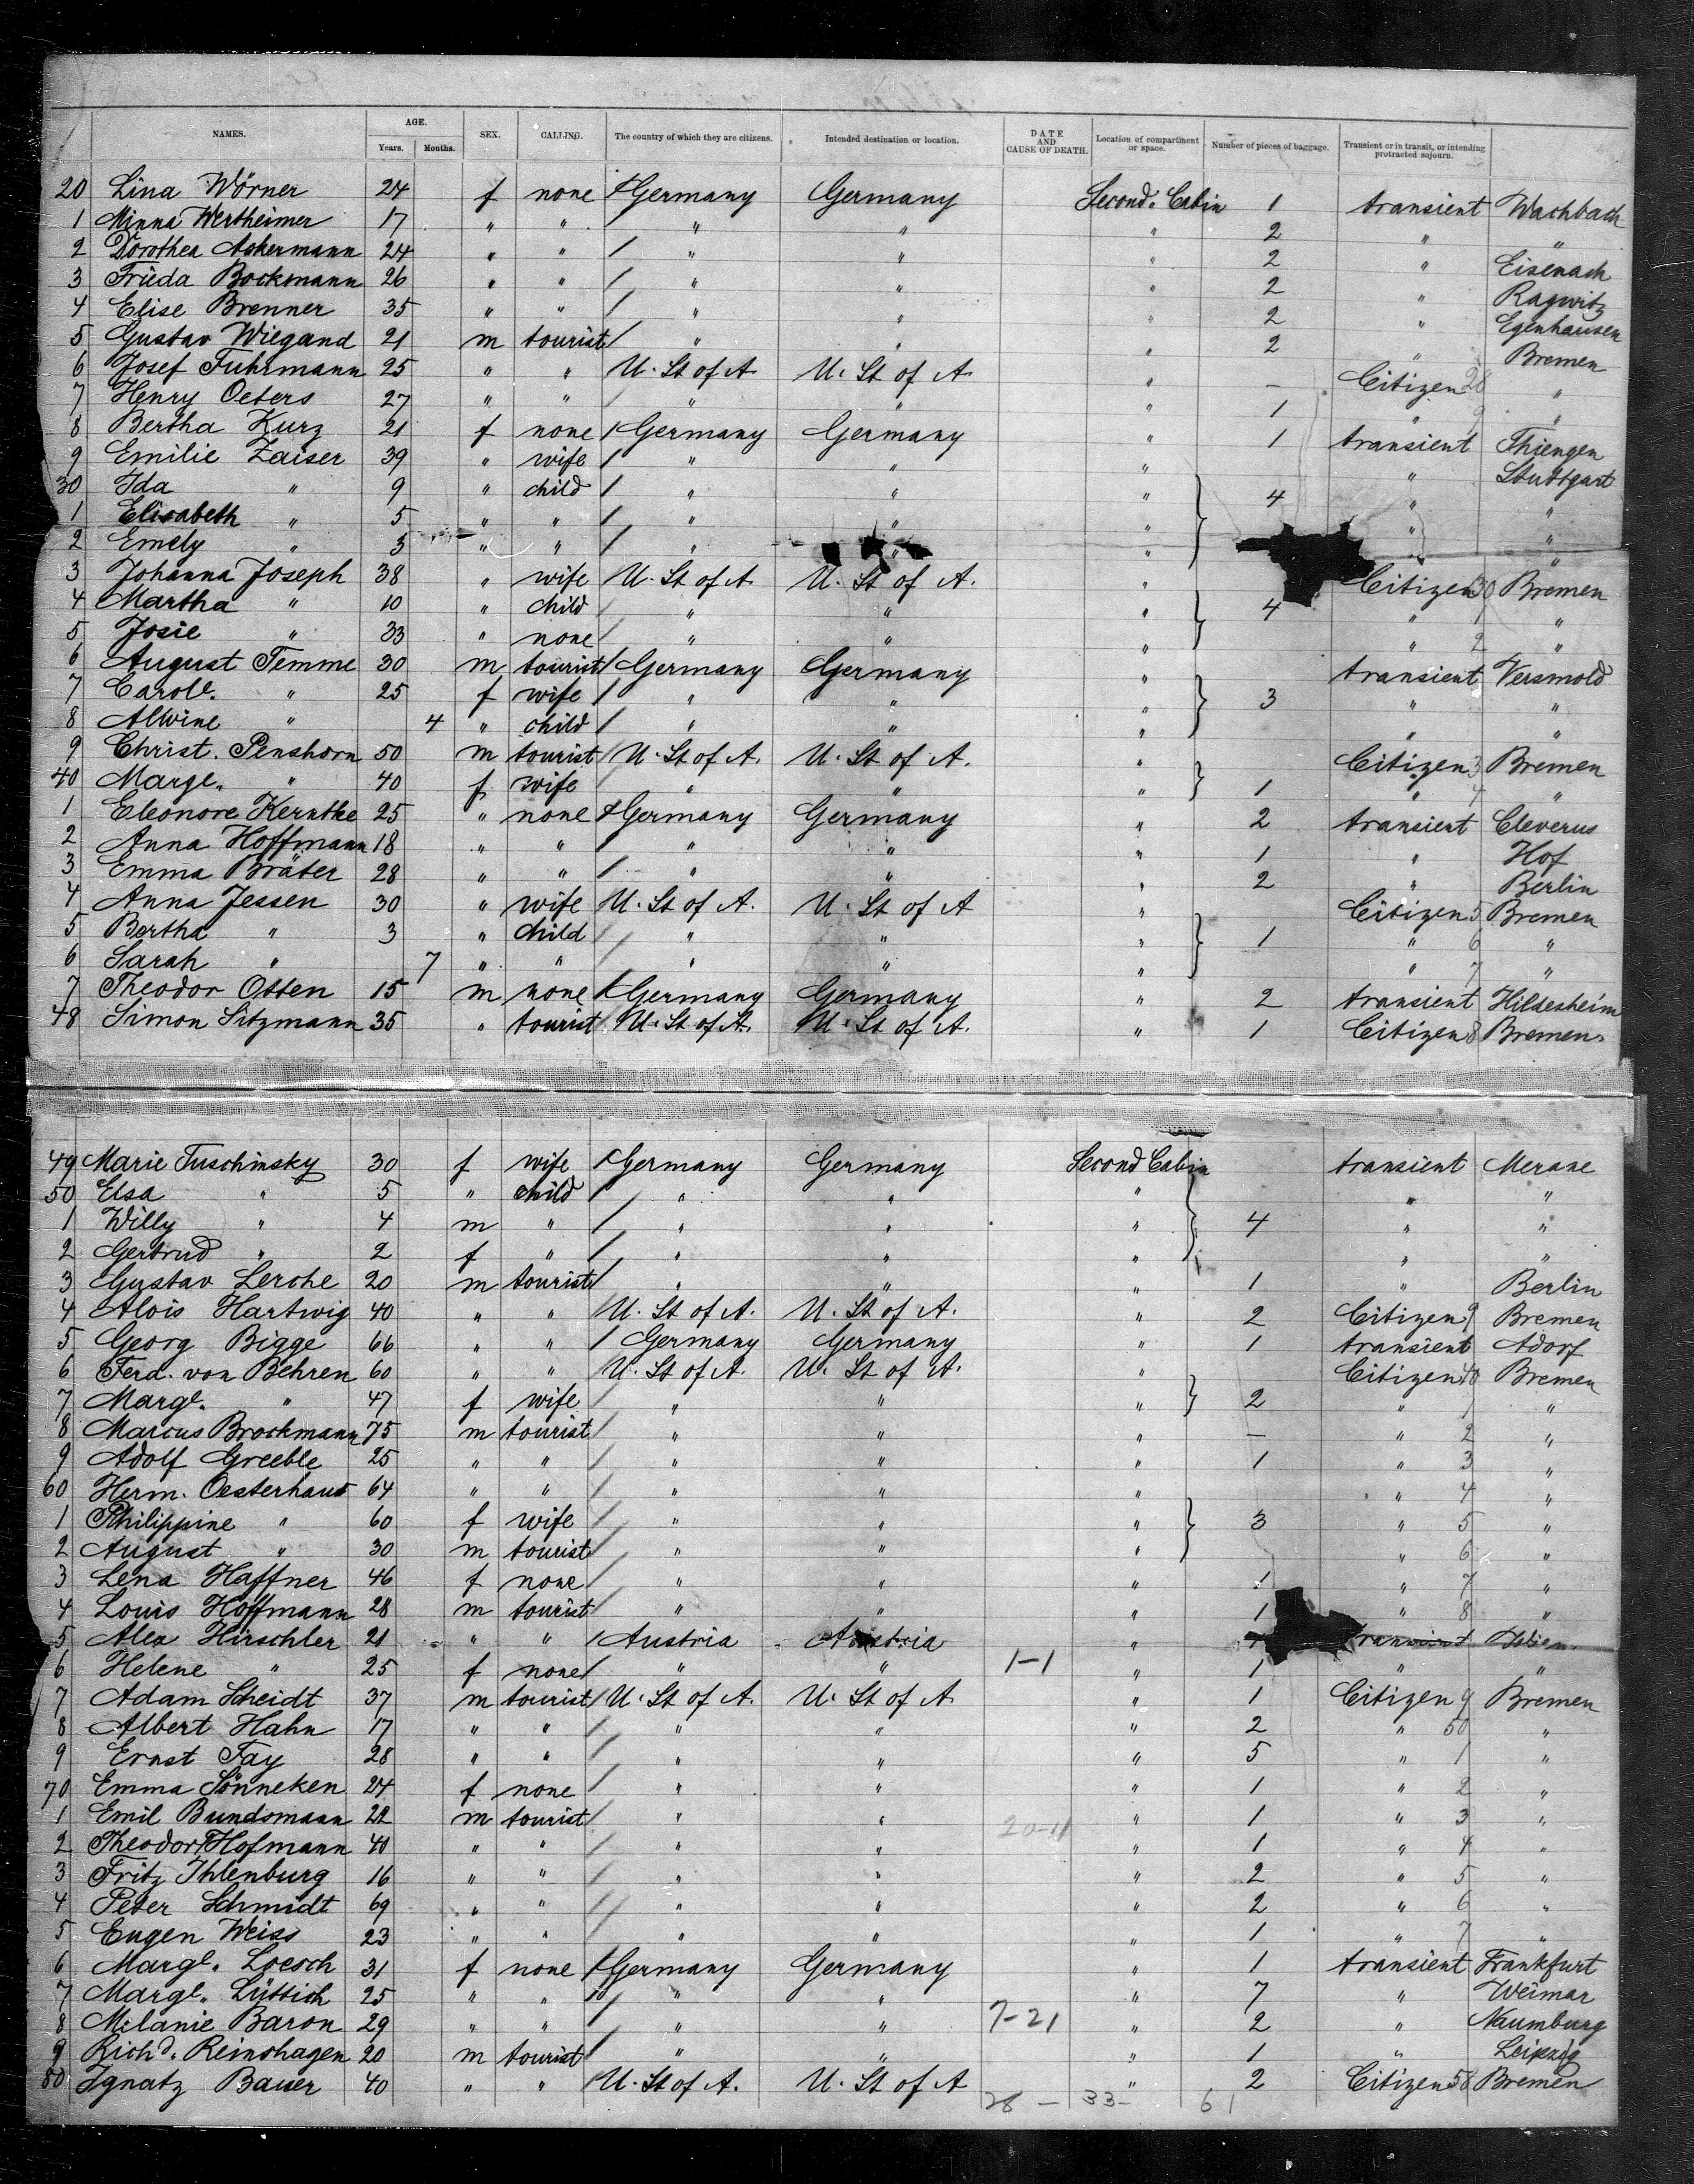 NAMES. AGE. Years. Months. SEX. CALLING. The country of which they are citizens. Intended destination or location. DATE AND CAUSE OF DEATH. Location of compartment or space. Number of pieces of baggage. Transient or in transit, or intending protracted sojourn.
20 Lina Wörner 24 f none Germany Germany Second. Cabin 1 transient Wachbach
1 Minna Wertheimer 17 " " " " " 2 " "
2 Dorothea Ackermann 24 " " / " " " 2 " Eisenach
3 Frieda Bockmann 26 " " / " " " 2 " Ragwitz
4 Elise Brenner 35 " " / " " " 2 " Egenhausen
5 Gustav Wiegand 21 m tourist / " " " 2 " Bremen
6 Josef Fuhrmann 25 " " U. St of A. U. St of A. " – Citizen 28 "
7 Henry Oeters 27 " " / " " " 1 " 9 "
8 Bertha Kurz 21 f none / Germany Germany " 1 transient Thiengen
9 Emilie Zaiser 39 " wife / " " " " Stuttgart
30 Ida " 9 " child / " " " } 4 " "
1 Elisabeth " 5 " " / " " " " "
2 Emely " 3 " " / " " " " "
3 Johanna Joseph 38 " wife U. St of A. U. St of A. " Citizen 30 Bremen
4 Martha " 10 " child / " " " } 4 " 1 "
5 Josie " 33 " none / " " " " 2 "
6 August Temme 30 m tourist / Germany Germany " transient Versmold
7 Carole. " 25 f wife / " " " } 3 " "
8 Alwine " 4 " child / " " " " "
9 Christ. Penshorn 50 m tourist U. St of A. U. St of A. " Citizen 3 Bremen
40 Marge. " 40 f wife " " " } 1 " 4 "
1 Eleonore Kerntke 25 " none Germany Germany " 2 transient Cleverus
2 Anna Hoffmann 18 " " / " " " 1 " Hof
3 Emma Bräter 28 " " / " " " 2 " Berlin
4 Anna Jessen 30 " wife U. St of A. U. St of A " Citizen 5 Bremen
5 Bertha " 3 " child / " " " } 1 " 6 "
6 Sarah " 7 " " / " " " " 7 "
7 Theodor Otten 15 m none Germany Germany " 2 transient Hildesheim
48 Simon Sitzmann 35 " tourist U. St of A. U. St of A. " 1 Citizen 8 Bremen.
49 Marie Tuschinsky 30 f wife Germany Germany Second Cabin transient Merane
50 Elsa " 5 " child / " " " " "
1 Willy " 4 m " / " " " } 4 " "
2 Gertrud " 2 f " / " " " " "
3 Gustav Lerche 20 m tourist / " " " 1 " Berlin
4 Alois Hartwig 40 " " U. St of A. U. St of A. " 2 Citizen 9 Bremen
5 Georg Bigge 66 " " / Germany Germany " 1 transient Adorf
6 Ferd. von Behren 60 " " U. St of A. U. St of A. " Citizen 40 Bremen
7 Margl. " 47 f wife / " " " } 2 " 1 "
8 Marcus Brockmann 75 m tourist / " " " – " 2 "
9 Adolf Greeble 25 " " / " " " 1 " 3 "
60 Herm. Oesterhaus 64 " " / " " " " 4 "
1 Philippine " 60 f wife / " " " } 3 " 5 "
2 August " 30 m tourist / " " " " 6 "
3 Lena Haffner 46 f none / " " " 1 " 7 "
4 Louis Hoffmann 28 m tourist / " " " 1 " 8 "
5 Alex Hirschler 21 " " / Austria Austria "
6 Helene " 25 f none / " " 1-1 " 1 " "
7 Adam Scheidt 37 m tourist U. St of A. U. St of A " 1 Citizen 9 Bremen
8 Albert Hahn 17 " " / " " " 2 " 50 "
9 Ernst Fay 28 " " / " " " 5 " 1 "
70 Emma Sönneken 24 f none / " " " 1 " 2 "
1 Emil Bundsmann 22 m tourist / " " 20-11 " 1 " 3 "
2 Theodor Hofmann 40 " " / " " " 1 " 4 "
3 Fritz Ihlenburg 16 " " / " " " 2 " 5 "
4 Peter Schmidt 69 " " / " " " 2 " 6 "
5 Eugen Weiss 23 " " / " " " 1 " 7 "
6 Margl. Loesch 31 f none Germany Germany " 1 transient Frankfurt
7 Margl. Lüttich 25 " " / " " " 7 " Weimar
8 Melanie Baron 29 " " / " " 7-21 " 2 " Naumburg
9 Richd. Reinshagen 20 m tourist / " " " 1 " Leipzig
80 Ignatz Bauer 40 " " U. St of A. U. St of A " 2 Citizen 58 Bremen
28 – 33 – 61